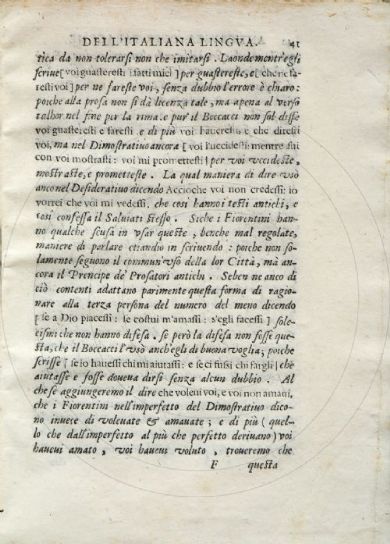 DELL'ITALIANA LINGVA. 41
tica da non tolerarsi non che imitarsi. Laonde mentr'egli
scriue [voi guasteresti i fatti miei] per guastereste, e[ che ne fa-
resti voi] per ne fareste voi, senza dubbio l'errore è chiaro:
poiche alla prosa non si dà licenza tale, ma apena al verso
talhor nel fine per la rima. e pur il Boccacci non sol disse
voi guasteresti e faresti. e di più voi haueresti e che diresti
voi, ma nel Dimostratiuo ancora [voi l'uccidesti: mentre stu
con voi mostrasti: voi mi promettesti] per voi uccideste,
mostraste, e prometteste. La qual maniera di dire usò
anco nel Desideratiuo dicendo Accioche voi non credessi: io
vorrei che voi mi vedessi, che così hanno i testi antichi, e
così confessa il Saluiati stesso. Siche i Fiorentini han-
no qualche scusa in usar queste, benche mal regolate,
maniere di parlare etiandio in scriuendo: poiche non so-
lamente seguono il commun'uso della lor Città, mà an-
cora il Prencipe de' Prosatori antichi. Seben ne anco di
ciò contenti adattano parimente questa forma di ragio-
nare alla terza persona del numero del meno dicendo
[se a Dio piacessi: se costui m'amassi: s'egli facessi] sole-
cismi che non hanno difesa. se però la difesa non fosse que-
sta, che il Boccacci l'usò anch'egli di buona voglia; poiche
scrisse [se io hauessi chi mi aiutassi: e se ci fussi chi fargli] che
aiutasse e fosse doueua dirsi senza alcun dubbio. Al
che se aggiungeremo il dire che voleui voi, e voi non amaui,
che i Fiorentini nell'imperfetto del Dimostratiuo dico-
no inuece di voleuate & amauate; e di più (quel-
lo che dall'imperfetto al più che perfetto deriuano) voi
haueui amato, voi haueui voluto, troueremo che
F questa